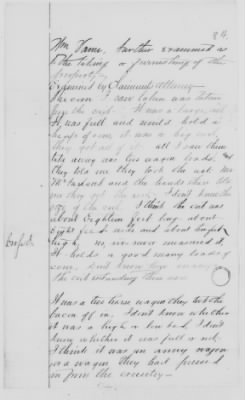 Wm. Vance, further examined as
to the taking or furnishing of the
property.
Examined by Claimants Attorney
The corn I saw taken was taken
from the crib. It was a large crib
It was full and would hold a
heap of corn, it was a big crib,
they got all of it. all I saw them
take away was six wagon loads.
They told me they took the rest. Mr
and the hands then told
me they got the rest. I don't know the
size of the crib. I think the crib was
about Eighteen feet long about
Eight feet wide and about
high, no, never measured,
It holds a good many loads of
corn, don't know how many
the crib is standing there now

It was a two horse wagon they took the
bacon off in. I don't know whether
it was a high or low bed, I don't
know whether it was full or not.
I think it was an army wagon
or a wagon they had pressed
in from the country-